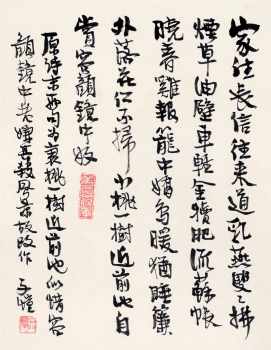 家住長信往來道乳燕雙〻拂
煙草油壁車輕金犢肥流蘇帳
曉春雞報籠中嬌鳥暖猶睡簾
外落花閑不掃小桃一樹近前池自
賞容顏鏡中好
原詩末兩句為衰桃一樹近前池似惜容
顏鏡中老嫌其殺風景故改作 子愷